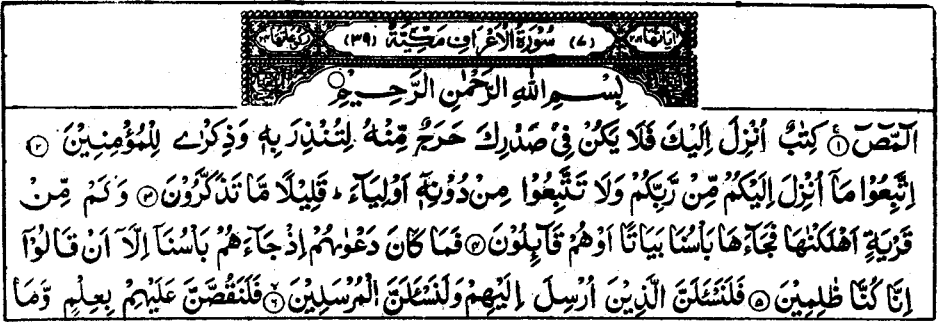 اٰيَاتُهَا ٢٠٦ (٧) سُوْرَةُ الْاَعْرَافِ مَكِّيَّةٌ (٣٩) رُكُوْعَاتُهَا ٢٤
بِسْمِ اللّٰهِ الرَّحْمٰنِ الرَّحِيْمِ
الٓمّٓصٓ ۝١ كِتٰبٌ اُنْزِلَ اِلَيْكَ فَلَا يَكُنْ فِيْ صَدْرِكَ حَرَجٌ مِّنْهُ لِتُنْذِرَ بِهٖ وَذِكْرٰى لِلْمُؤْمِنِيْنَ ۝٢
اِتَّبِعُوْا مَآ اُنْزِلَ اِلَيْكُمْ مِّنْ رَّبِّكُمْ وَلَا تَتَّبِعُوْا مِنْ دُوْنِهٖٓ اَوْلِيَآءَ ؕ قَلِيْلًا مَّا تَذَكَّرُوْنَ ۝٣ وَكَمْ مِّنْ
قَرْيَةٍ اَهْلَكْنٰهَا فَجَآءَهَا بَاْسُنَا بَيَاتًا اَوْهُمْ قَآىِٕلُوْنَ ۝٤ فَمَا كَانَ دَعْوٰىهُمْ اِذْ جَآءَهُمْ بَاْسُنَآ اِلَّآ اَنْ قَالُوْٓا
اِنَّا كُنَّا ظٰلِمِيْنَ ۝٥ فَلَنَسْـَٔلَنَّ الَّذِيْنَ اُرْسِلَ اِلَيْهِمْ وَلَنَسْـَٔلَنَّ الْمُرْسَلِيْنَ ۝٦ فَلَنَقُصَّنَّ عَلَيْهِمْ بِعِلْمٍ وَّمَا